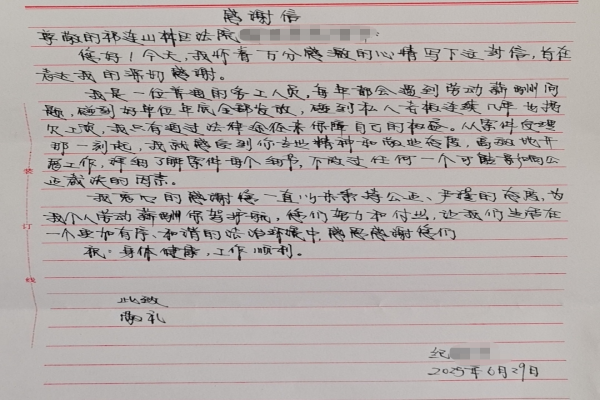 感谢信
尊敬的祁连山林区法院
您好！今天，我怀着万分感激的心情写下这封信，旨在
表达我的深切感谢。
我是一位普通的务工人员，每年都会遇到劳动薪酬问
题，碰到好单位年底全部发放，碰到私人老板连续几年也拖
欠工资，我只有通过法律途径来保障自己的权益。从案件受理
那一刻起，我就感受到你们精神和敬业态度，高效地开
展工作，详细了解案件每个细节，不放过任何一个可能影响公
正裁决的因素。
我衷心的感谢你一直以来秉持公正、严谨的态度，为
我个人劳动薪酬保驾护航，您们努力和付出，让我们生活在
一个更加有序、和谐的法治环境中，感恩感谢您们
祝：身体健康，工作顺利。
此致
敬礼
纪
2025年6月29日
装
订
线